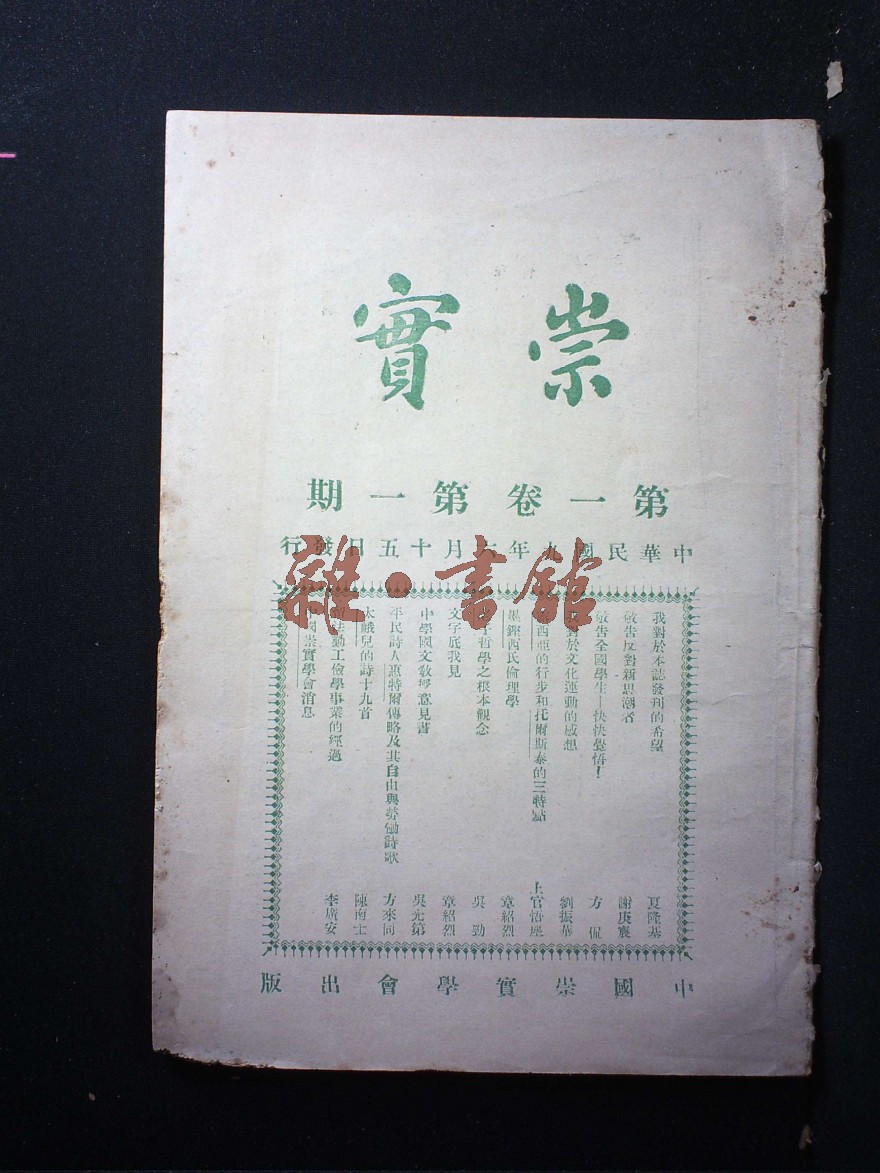 崇實
第一卷第一期
中華民國九年六月十五日發行
我對於本誌發刊的希望 夏隆基
敬告反對新思潮者 謝庚宸
敬告全國學生—快快覺悟! 方侃
我對於文化運動的感想 劉振華
西亞的行步和托爾斯泰的三特點 上官悟塵
墨經西氏倫理學 章紹烈
子哲學之根本觀念 吳勁
文字底我見 章紹烈
中學國文敎學意見書 吳光第
平民詩人惠特爾傳略及其自由與勞働詩歌 方來同
太戲兒的詩十九首 陳南士
法勤工儉學事業的經過 李廣安
中國崇實學會消息
中國崇實學會出版
雜·書館